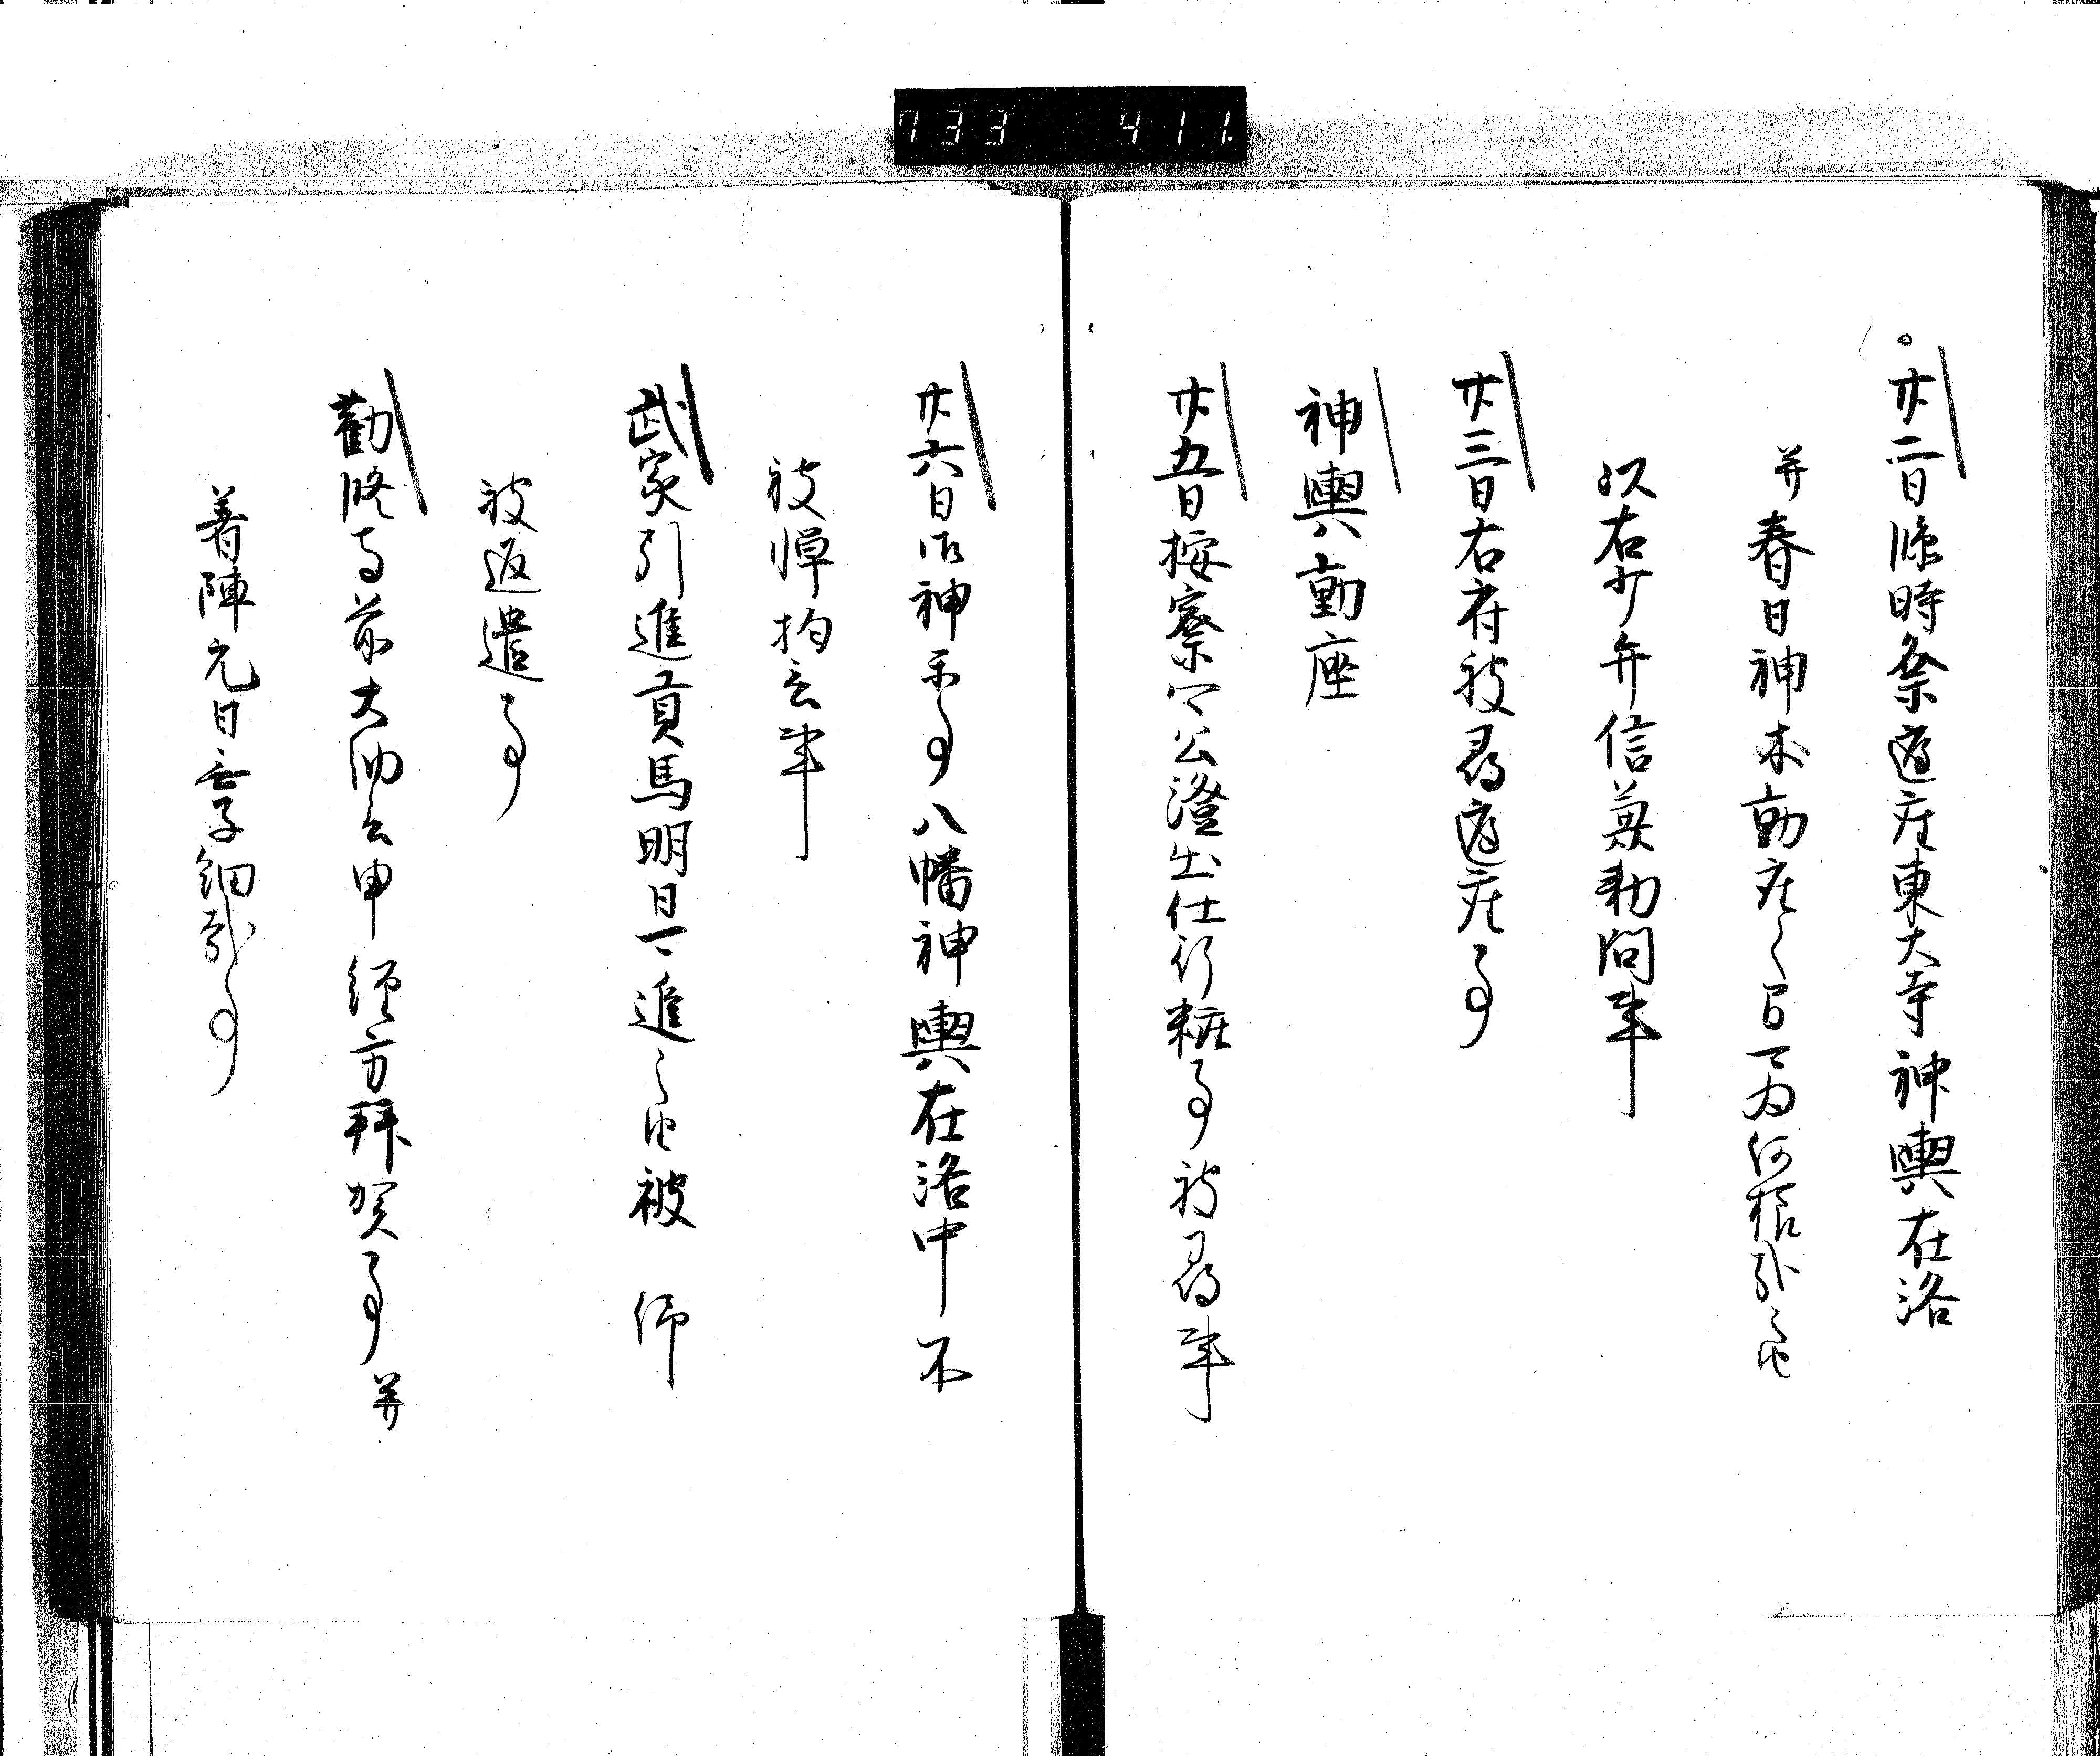 733 411
廿二日臨時祭追座東大寺神輿在洛
并春日神木動座之間可為何樣哉之由
以右少弁信兼勅問事
廿三日右府被尋追座事
神輿動座
廿五日按察公澄出仕行粧事被尋事
廿六日内神事八幡神輿在洛中不
被憚拘云事
武家引進貢馬明日可進之由被仰
被返遣事
勸修寺前大納言申経方拜賀事并
著陣元日無子細哉事